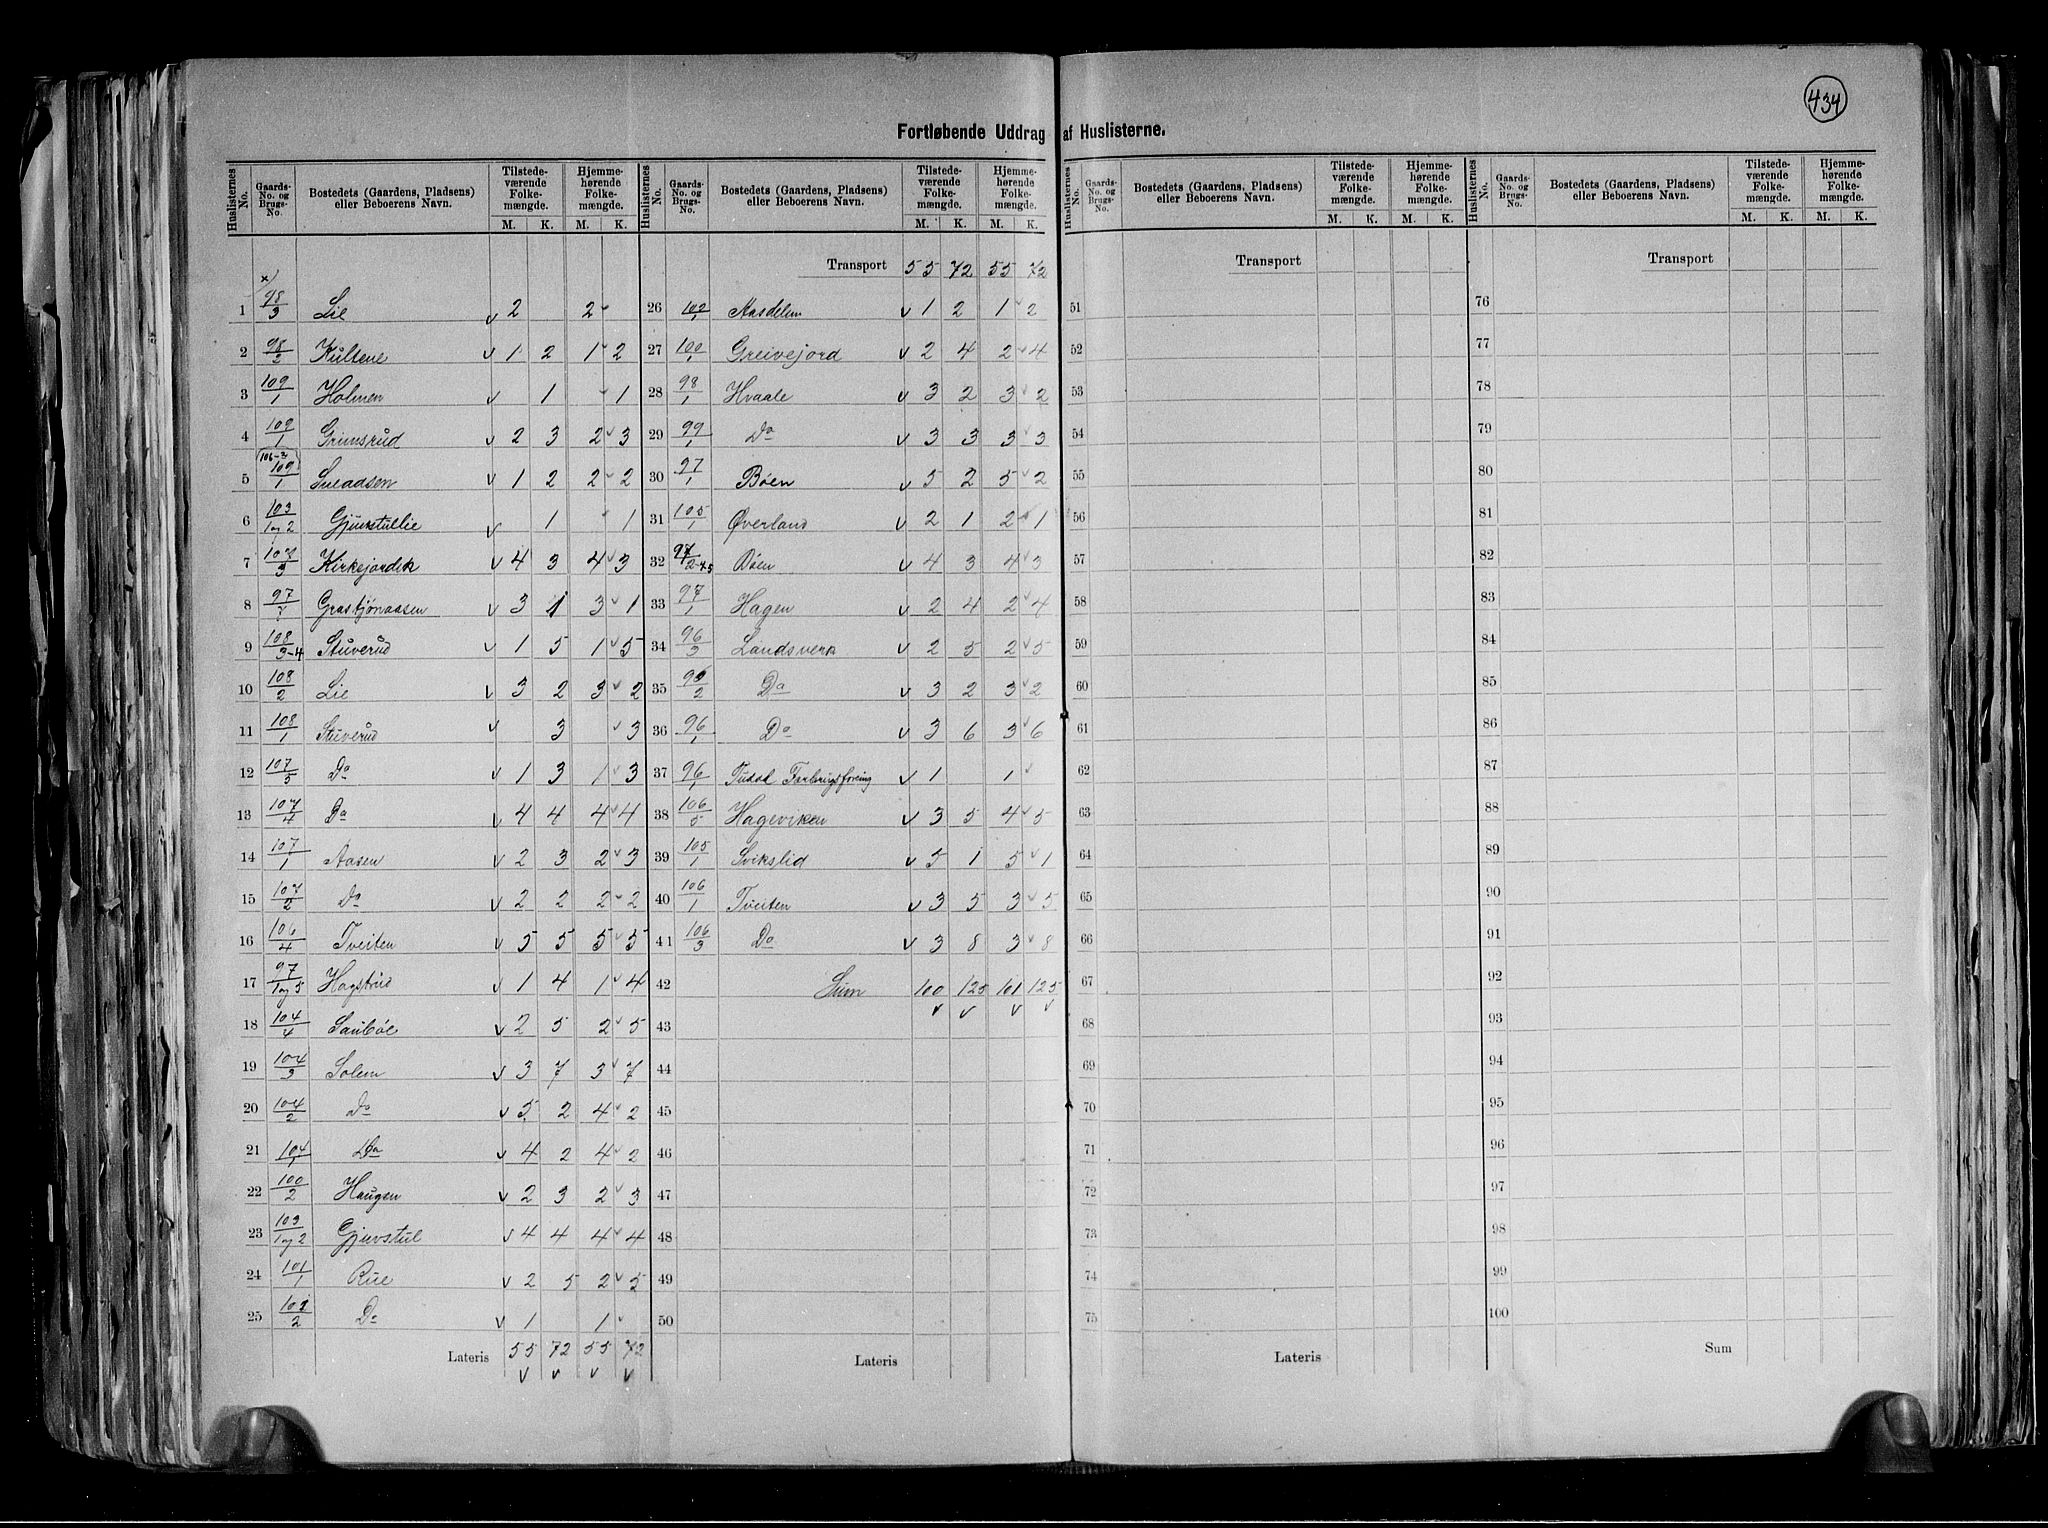 434
Fortløbende Uddrag af Huslisterne.
Huslisternes No. Gaards-No. og Brugs-No. Bostedets (Gaardens, Pladsens) eller Beboerens Navn. Tilstedeværende Folkemængde. M. K. Hjemmehørende Folkemængde. M. K.
1 98/3 Lie v 2 2
2 98/2 Kultene v 1 2 1 2
3 109/1 Holmen v 1 1
4 109/1 Grimsrud v 2 3 2 3
5 106-2 109/1 v 1 2 2 2
6 103/1og2 Gjuvstullie v 1 1
7 107/3 v 4 3 4 3
8 97/7 Grastjønaasen v 3 1 3 1
9 108/3-4 Stuverud v 1 5 1 5
10 108/2 Lie v 3 2 3 2
11 108/1 Stuverud v 3 3
12 107/5 Do v 1 3 1 3
13 107/4 Do v 4 4 4 4
14 107/1 Aasen v 2 3 2 3
15 107/2 Do v 2 2 2 2
16 106/4 Tveiten v 5 5 5 5
17 97/1og5 Hagstrud v 1 4 1 4
18 104/4 Saubøe v 2 5 2 5
19 104/3 Solem v 3 7 3 7
20 104/2 Do v 5 2 4 2
21 104/1 Do v 4 2 4 2
22 100/2 Haugen v 2 3 2 3
23 103/1og2 Gjuvstul v 4 4 4 4
24 101/1 Rue v 2 5 2 5
25 /2 Do v 1 1
Lateris 55 72 55 72
v v v v
Huslisternes No. Gaards-No. og Brugs-No. Bostedets (Gaardens, Pladsens) eller Beboerens Navn. Tilstedeværende Folkemængde. M. K. Hjemmehørende Folkemængde. M. K.
Transport 55 72 55 72
26 /1 Aasdelen v 1 2 1 2
27 100/1 Greivejord v 2 4 2 4
28 98/1 Hvaale v 3 2 3 2
29 99/1 Do v 3 3 3 3
30 97/1 Bøen v 5 2 5 2
31 105/1 Øverland v 2 1 2 1
32 97 Bøen v 4 3 4 3
33 97/1 Hagen v 2 4 2 4
34 96/3 Landsverk v 2 5 2 5
35 96/2 Do v 3 2 3 2
36 96/1 Do v 3 6 3 6
37 96/1 Tudal v 1 1
38 106/5 Hageviken v 3 5 4 5
39 105/1 Svikslid v 5 1 5 1
40 106/1 Tveiten v 3 5 3 5
41 106/3 Do v 3 8 3 8
42 Sum 100 125 101 125
v v v v
43
44
45
46
47
48
49
50
Lateris
Huslisternes No. Gaards-No. og Brugs-No. Bostedets (Gaardens, Pladsens) eller Beboerens Navn. Tilstedeværende Folkemængde. M. K. Hjemmehørende Folkemængde. M. K.
Transport
51
52
53
54
55
56
57
58
59
60
61
62
63
64
65
66
67
68
69
70
71
72
73
74
75
Lateris
Huslisternes No. Gaards-No. og Brugs-No. Bostedets (Gaardens, Pladsens) eller Beboerens Navn. Tilstedeværende Folkemængde. M. K. Hjemmehørende Folkemængde. M. K.
Transport
76
77
78
79
80
81
82
83
84
85
86
87
88
89
90
91
92
93
94
95
96
97
98
99
100
Sum